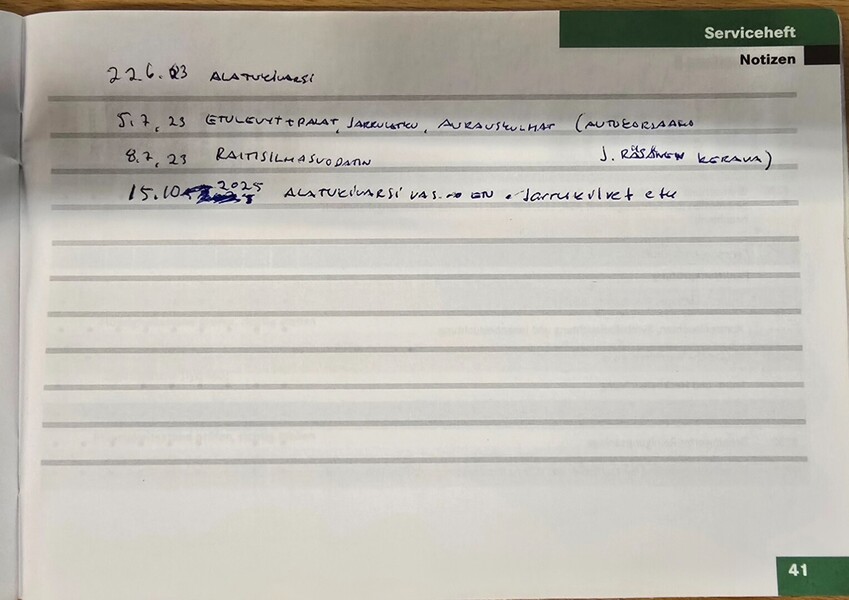 Serviceheft
Notizen
22 6. 23 ALATUKIVARSI
5.7.23 ETULEVYT+PALAT, JARRULETKU, AURAUSKULMAT (AUTOKORJAAMO
8.7.23 RAITISILMASUODATIN J. RÄSÄNEN KERAVA)
15.10 2025 ALATUKIVARSI VAS. EN . Jarrukivet etu
41